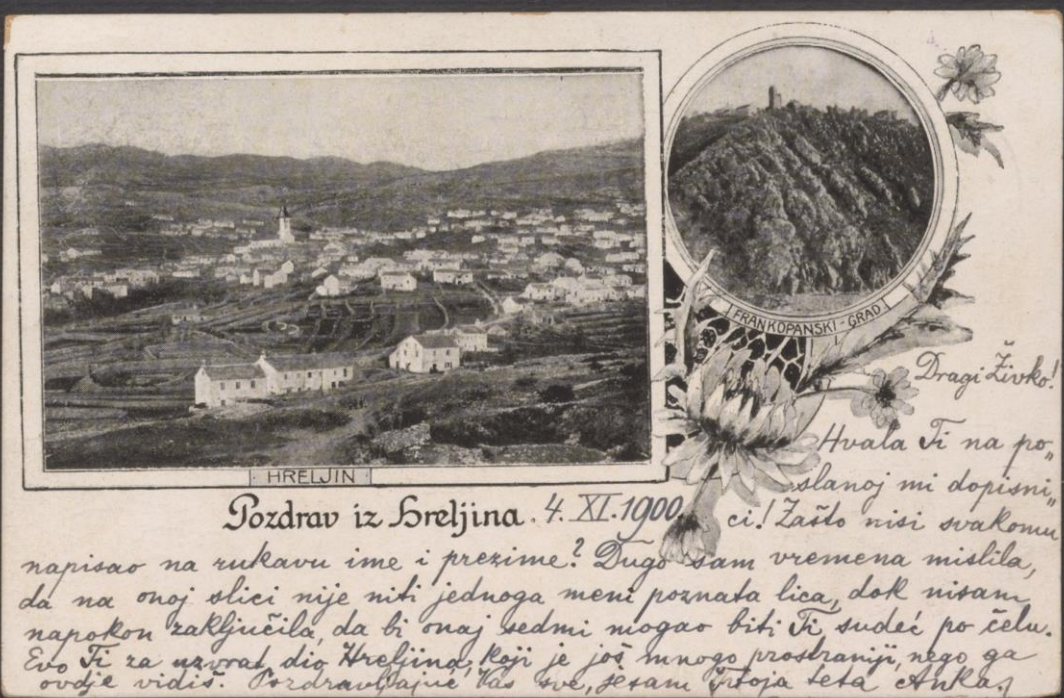 FRANKOPANSKI-GRAD
HRELJIN
Pozdrav iz Hreljina. 4. XI. 1900.
Dragi Živko!
Hvala Ti na po„
slanoj mi dopisni„
ci! Zašto nisi svakomu
napisao na rukavu ime i prezime? Dugo sam vremena mislila,
da na onoj slici nije niti jednoga meni poznata lica, dok nisam
napokon zaključila, da bi onaj sedmi mogao biti Ti, sudeć po čelu.
Evo Ti za uzvrat dio Hreljina, koji je još mnogo prostraniji, nego ga
ovdje vidiš. Pozdravljajuć Vas sve, jesam Tvoja teta Anka,